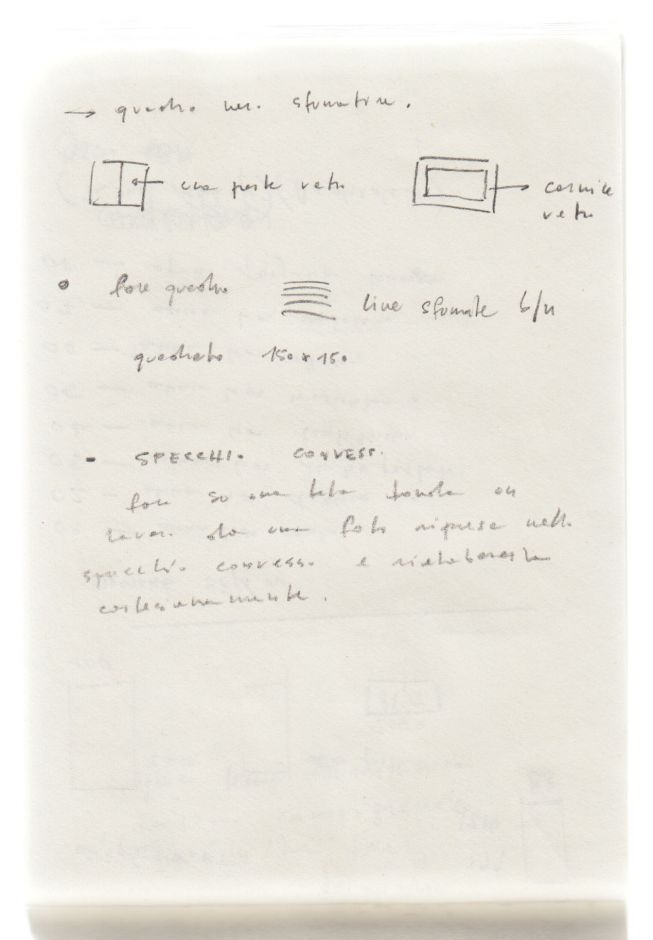 → quadro ner. sfumature.
una parte vetro
cornice
vetro
• fare quadro
line sfumate b/n
quadrato 150 x 150
- SPECCHIO CONVESSO
fare su una tela tonda un
lavoro da una foto ripresa nello
specchio convesso e rielaborarla
cartesianamente.